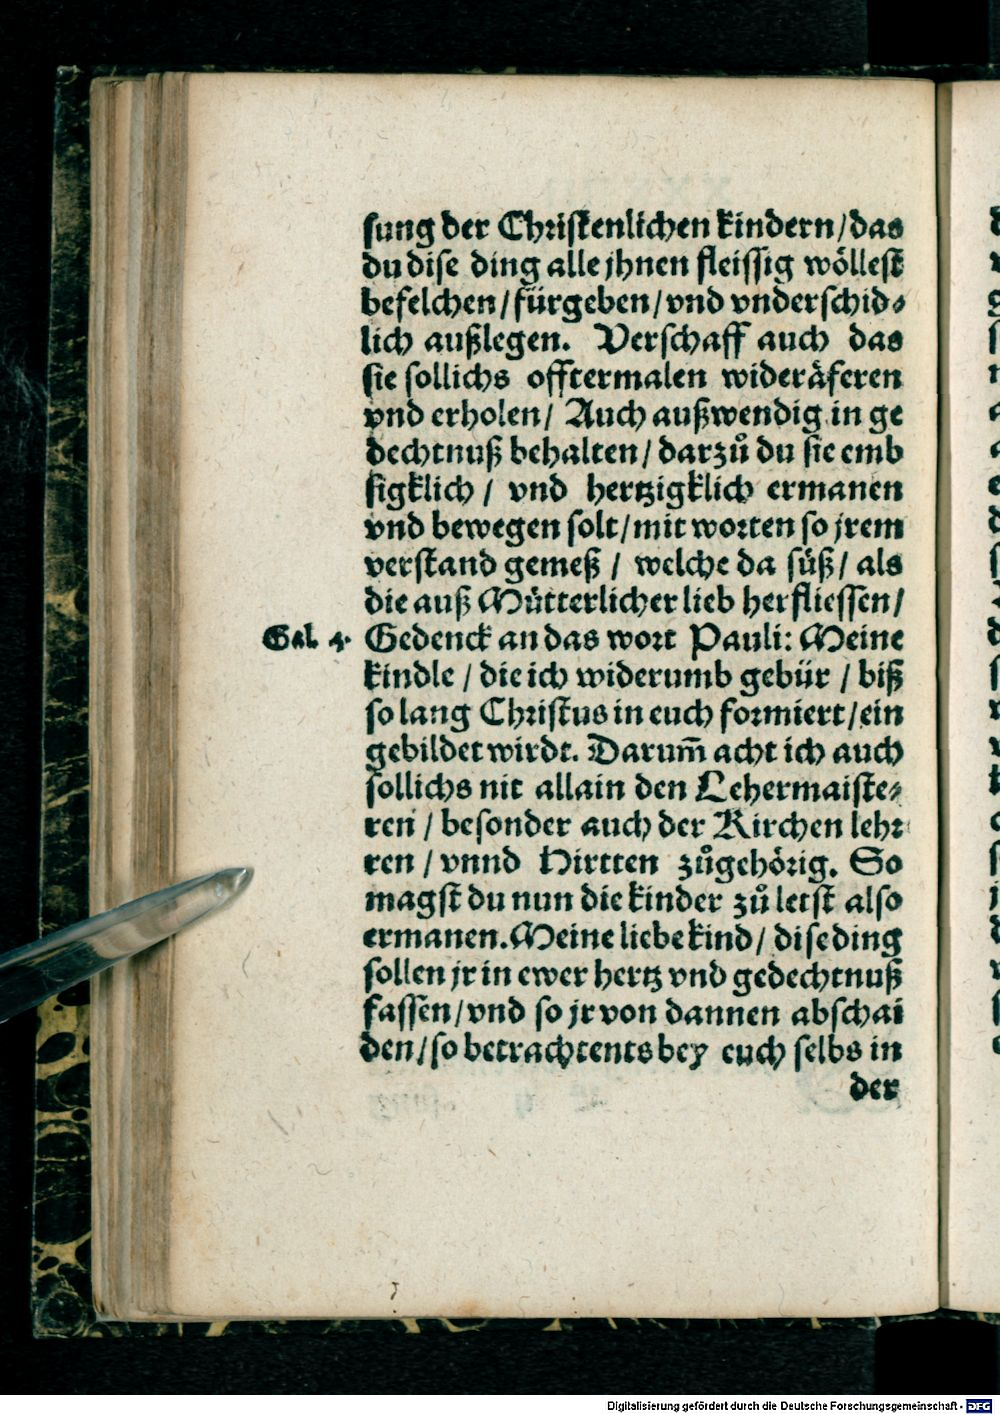 sung der Christenlichen kindern/das
du dise ding alle jhnen fleissig wöllest
befelchen/fürgeben/vnd vnderschid⸗
lich außlegen. Verschaff auch das
sie sollichs offtermalen wideräferen
vnd erholen/ Auch außwendig in ge
dechtnuß behalten/ darzů du sie emb
sigklich/ vnd hertzigklich ermanen
vnd bewegen solt/mit worten so jrem
verstand gemeß/ welche da süß/ als
die auß Mütterlicher lieb herfliessen/
Gal. 4. Gedenck an das wort Pauli: Meine
kindle/ die ich widerumb gebür/ biß
so lang Christus in euch formiert/ein
gebildet wirdt. Darum̃ acht ich auch
sollichs nit allain den Lehermaiste⸗
ren/ besonder auch der Kirchen lehr
ren/ vnnd Hirtten zůgehörig. So
magst du nun die kinder zů letst also
ermanen. Meine liebe kind/ dise ding
sollen jr in ewer hertz vnd gedechtnuß
fassen/vnd so jr von dannen abschai
den/so betrachtents bey euch selbs in
der
Digitalisierung gefördert durch die Deutsche Forschungsgemeinschaft - DFG